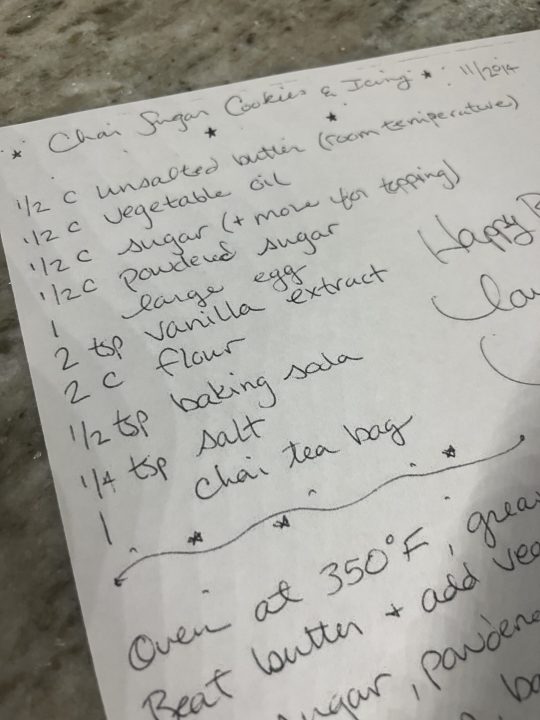 ★ Chai Sugar Cookies & Icing ★ 11/2014
1/2 c unsalted butter (room temperature)
1/2 c vegetable oil
1/2 c sugar (+ more for topping)
1/2 c powdered sugar
1 large egg
2 tsp vanilla extract
2 c flour
1/2 tsp baking soda
1/4 tsp salt
1 chai tea bag
Happy
Oven at 350°F,
Beat butter + add
sugar,